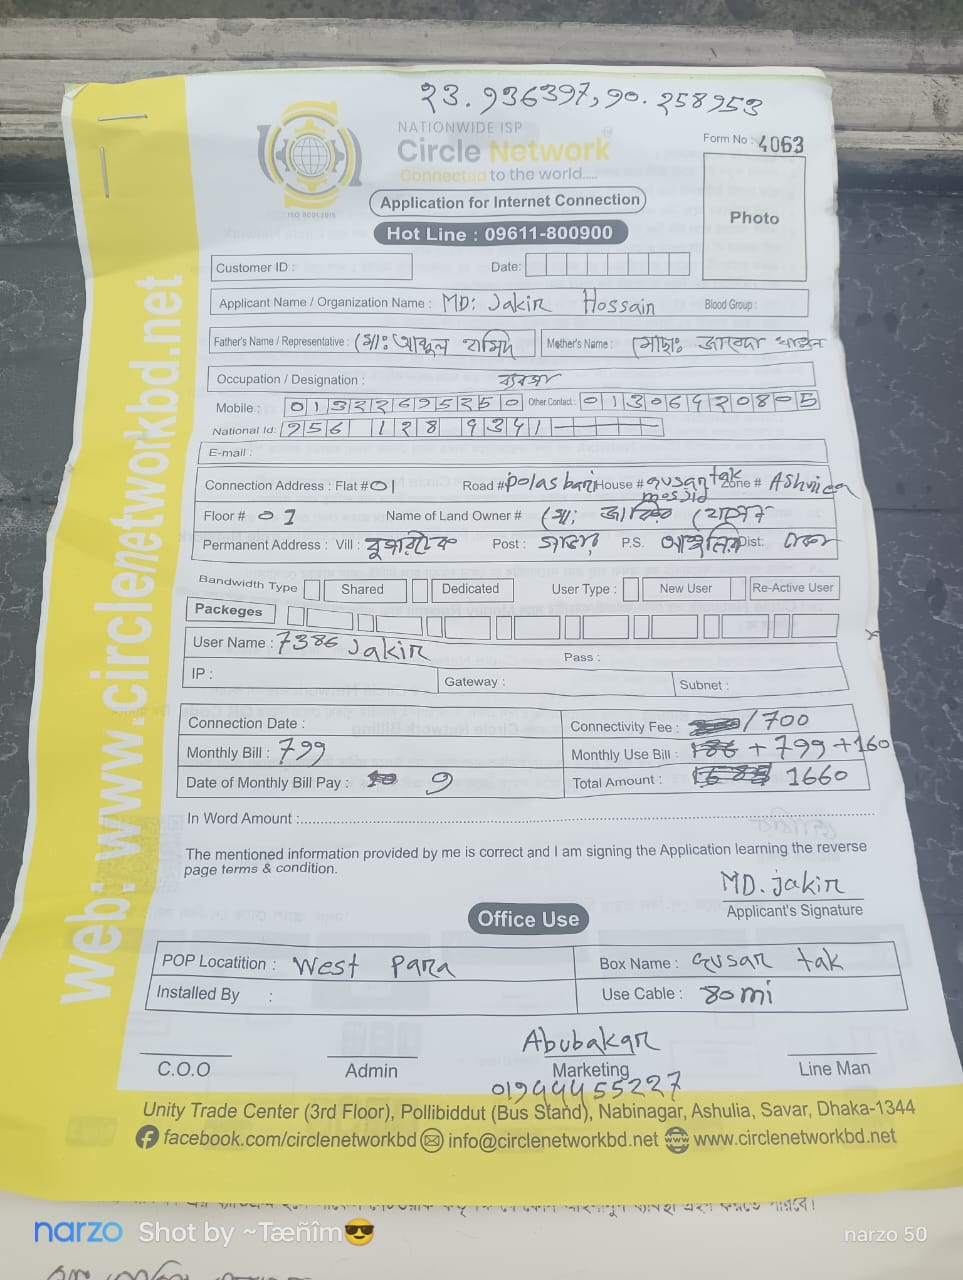 ২3.936397,90.258953
NATIONWIDE ISP
Circle Network
Connected to the world.....
ISO 9001:2015
Form No : 4063
Photo
Application for Internet Connection
Hot Line : 09611-800900
Customer ID :
Date:
Applicant Name / Organization Name : MD: Jakir Hossain Blood Group :
Father's Name / Representative : মো: Mother's Name : মোছা:
Occupation / Designation : ব্যবসা
Mobile : 01322695250 Other Contact: 01306420805
National Id: 956 128 9341
E-mail :
Connection Address : Flat # 01 Road # polas bari House # Gusar tak mosjid Zone # Ashulea
Floor # 01 Name of Land Owner # মো: জাকির হোসেন
Permanent Address : Vill : Post : সাভার P.S. আশুলিয়া Dist: ঢাকা
Bandwidth Type Shared Dedicated User Type : New User Re-Active User
Packeges
User Name : 7386 Jakir Pass :
IP : Gateway : Subnet :
Connection Date : Connectivity Fee : /700
Monthly Bill : 799 Monthly Use Bill : + 799 +160
Date of Monthly Bill Pay : 9 Total Amount : 1660
In Word Amount :
The mentioned information provided by me is correct and I am signing the Application learning the reverse
page terms & condition.
MD. jakir
Applicant's Signature
Office Use
POP Locatition : West Para Box Name : Gusar tak
Installed By : Use Cable : 80 mi
Abubakar
C.O.O Admin Marketing Line Man
01944455227
Unity Trade Center (3rd Floor), Pollibiddut (Bus Stand), Nabinagar, Ashulia, Savar, Dhaka-1344
facebook.com/circlenetworkbd info@circlenetworkbd.net www.circlenetworkbd.net
web: www.circlenetworkbd.net
narzo Shot by ~Tæñîm😎 narzo 50